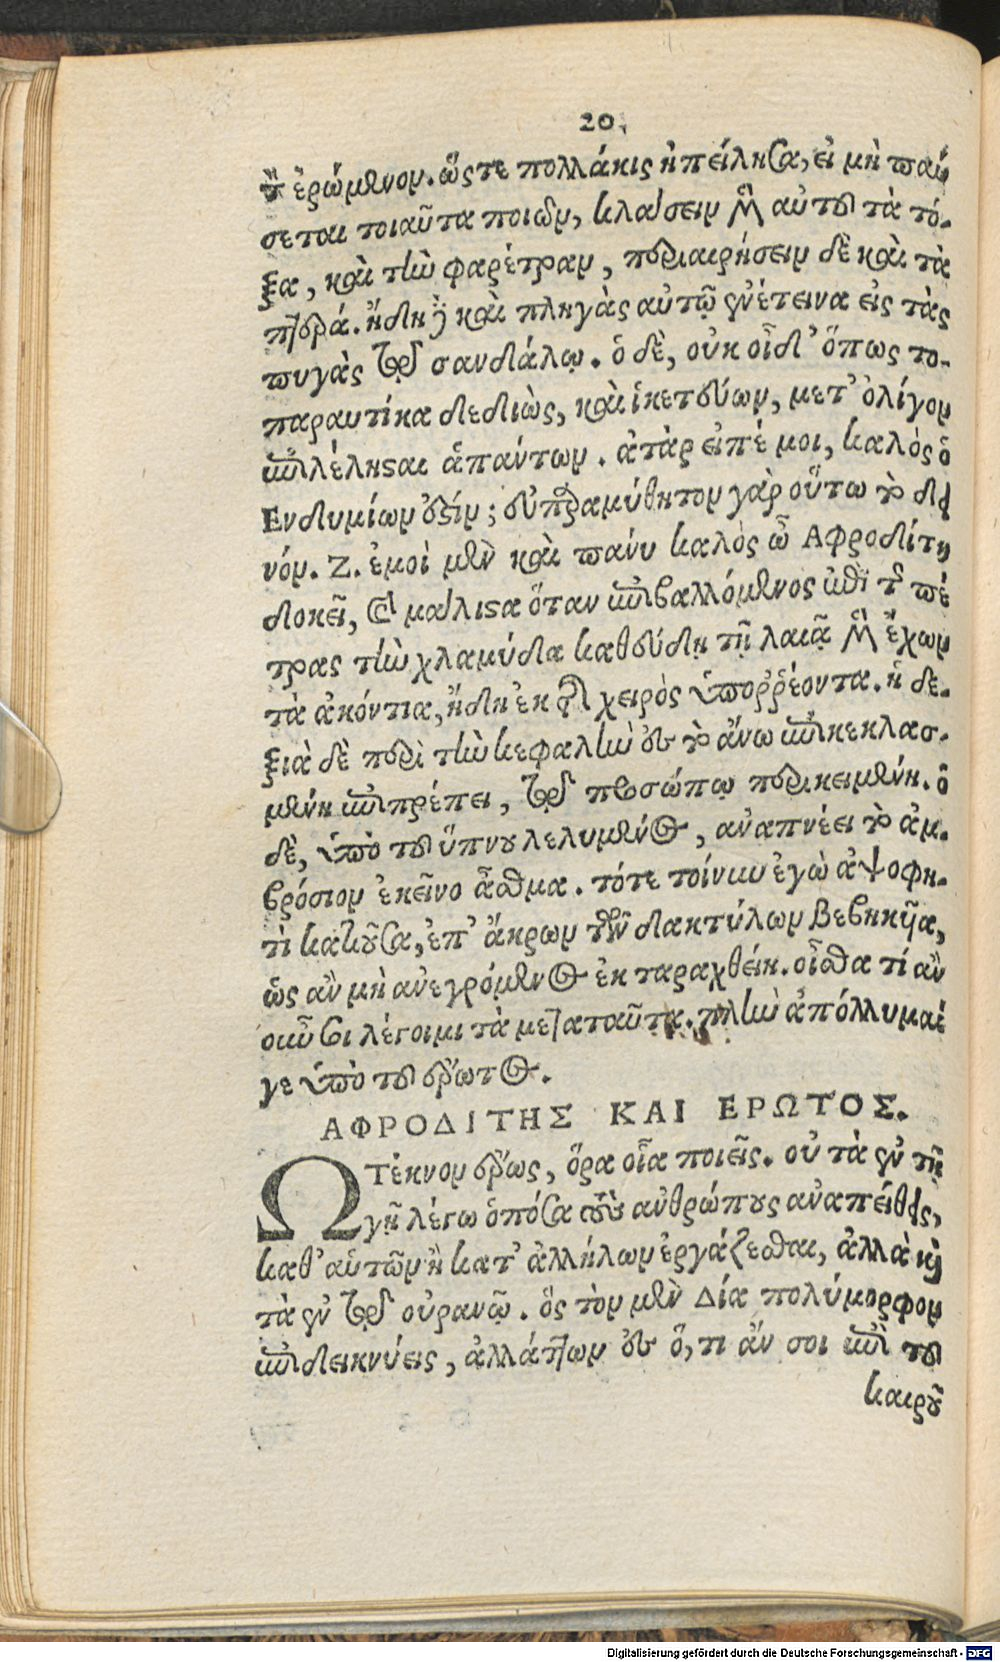 20.
τὸν ἐρώμενον. ὥστε πολλάκις ἠπείλησα, εἰ μὴ παύ
σεται τοιαῦτα ποιῶν, κλάσειν μὲν αὐτοῦ τὰ τό-
ξα, καὶ τὴν φαρέτραν, περιαιρήσειν δὲ καὶ τὰ
πτερά. ἤδη δὲ καὶ πληγὰς αὐτῷ ἐνέτεινα εἰς τὰς
πυγὰς τῷ σανδάλῳ. ὁ δὲ, οὐκ οἶδ' ὅπως το-
παραυτίκα δεδιὼς, καὶ ἱκετεύων, μετ' ὀλίγον
ἐπιλέλησαι ἁπάντων. ἀτὰρ εἰπέ μοι, καλὸς ὁ
Ενδυμίων ἐστίν; εὐπαραμύθητον γὰρ οὕτω τὸ δει
νόν. Ζ. ἐμοὶ μὲν καὶ πάνυ καλὸς ὦ Αφροδίτη
δοκεῖ, καὶ μάλιστα ὅταν ἐπιβαλλόμενος ἐπὶ τῆς πέ
τρας τὴν χλαμύδα καθεύδῃ τῇ λαιᾷ μὲν ἔχων
τὰ ἀκόντια, ἤδη ἐκ τῆς χειρὸς ὑποῤῥέοντα. ἡ δε-
ξιὰ δὲ περὶ τὴν κεφαλὴν ἐς τὸ ἄνω ἐπικεκλασ-
μένη ἐπιπρέπει, τῷ προσώπῳ περικειμένη. ὁ
δὲ, ὑπὸ τοῦ ὕπνου λελυμένος, ἀναπνέει τὸ ἀμ-
βρόσιον ἐκεῖνο ἆσθμα. τότε τοίνυν ἐγὼ ἀψοφη-
τὶ κατιοῦσα, ἐπ' ἄκρων τῶν δακτύλων βεβηκῆα,
ὡς ἂν μὴ ἀνεγρόμενος ἐκταραχθείη. οἶσθα τί ἂν
οὖν σοι λέγοιμι τὰ μετὰ ταῦτα. πλὴν ἀπόλλυμαί
γε ὑπὸ τοῦ ἔρωτος.
ΑΦΡΟΔΙΤΗΣ ΚΑΙ ΕΡΩΤΟΣ.
Ω Τέκνον ἔρως, ὅρα οἷα ποιεῖς. οὐ τὰ ἐν τῇ
γῇ λέγω ὁπόσα τοὺς ἀνθρώπους ἀναπείθεις,
καθ' αὑτῶν ἢ κατ' ἀλλήλων ἐργάζεσθαι, ἀλλὰ καὶ
τὰ ἐν τῷ οὐρανῷ. ὃς τὸν μὲν Δία πολύμορφον
ἐπιδεικνύεις, ἀλλάττων ἐς ὅ, τι ἄν σοι ἐπὶ τοῦ
καιροῦ
Digitalisierung gefördert durch die Deutsche Forschungsgemeinschaft - DFG